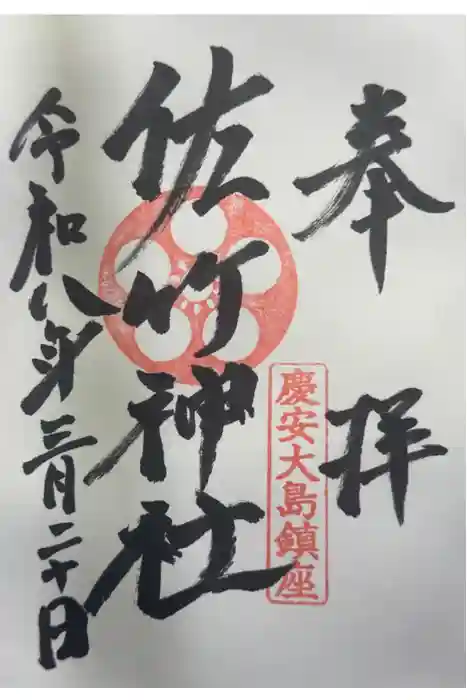 奉拝
慶安大島鎮座
佐竹神社
令和八年三月二十日